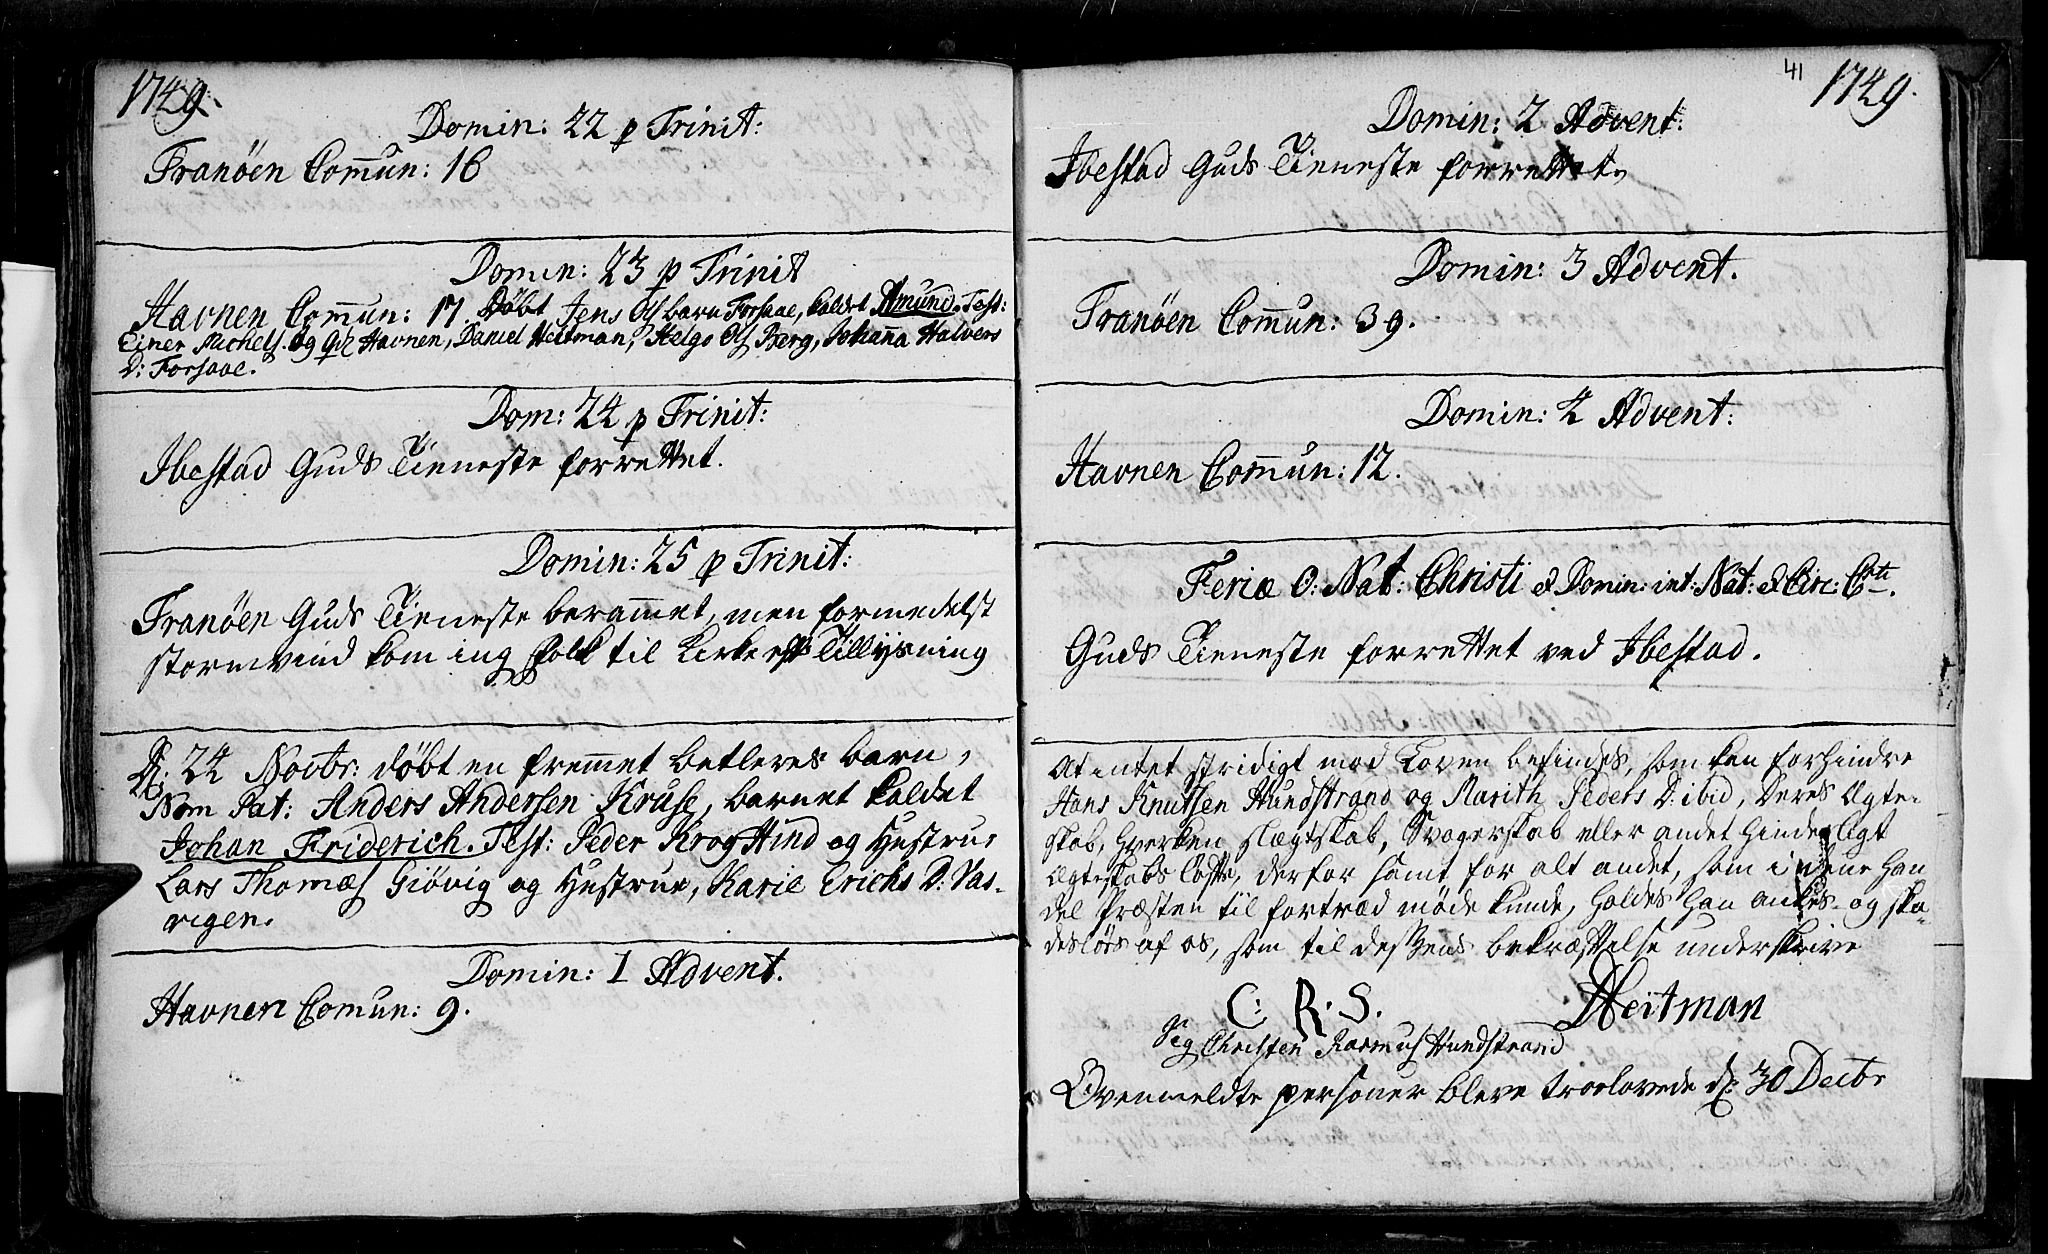 1749.
Domin: 22 p Trinit:
Tranöen Com̄un: 16
Domin: 23 p Trinit
Havnen Com̄un: 17. Döbt Jens Ols barn Forsaae, kaldet Amund. Test:
Einer Michels. og Qvi Havnen, Daniel Heitman, Helgo Ols Berg, Johan̄a Halvors
D: Forsaae.
Dom: 24 p Trinit:
Ibestad Guds Tieneste forrettet.
Domin: 25 p Trinit:
Tranöen Guds Tieneste beram̄et, men formedelst
stormvind kom ing folk til Kirke eft Tillysning
D: 24 Novbr: döbt en frem̄et betlers barn,
Nom Pat: Anders Andersen Kruse, barnet kaldet
Johan Friderich. Test: Peder Krog Hind og Hustrue
Lars Thomæs Giövig og Hustrue, Karie Erichs D: Vas-
rigen.
Domin: 1 Advent.
Havnen Comun: 9.
41
1749.
Domin: 2 Advent:
Ibestad Guds Tieneste forrettet.
Domin: 3 Advent.
Tranöen Com̄un: 39.
Domin: 4 Advent:
Havnen Com̄un: 12.
Feriæ O: Nat: Christi & Domin: int: Nat: & Circ: Cti.
Guds Tieneste forrettet ved Ibestad.
At intet stridigt mod Loven befindes, som kan forhindre
Hans Knutsen Hundstrand og Marith Peders D: ibid, Deres Ægte-
skab, hverken slægtskab, Svogerskab eller andet hinderligt
Ægteskabs löfte, derfor samt for alt andet, som i denne Han
del Præsten til fortræd möde kunde, holdes han ankes- og ska-
deslös af os, som til des Zens bekræftelse underskrive
C: R: S.
DHeitman
Sig Christen Rasmus Hundstrand
Ovenmeldte personer bleve troelovede d: 30 Decbr